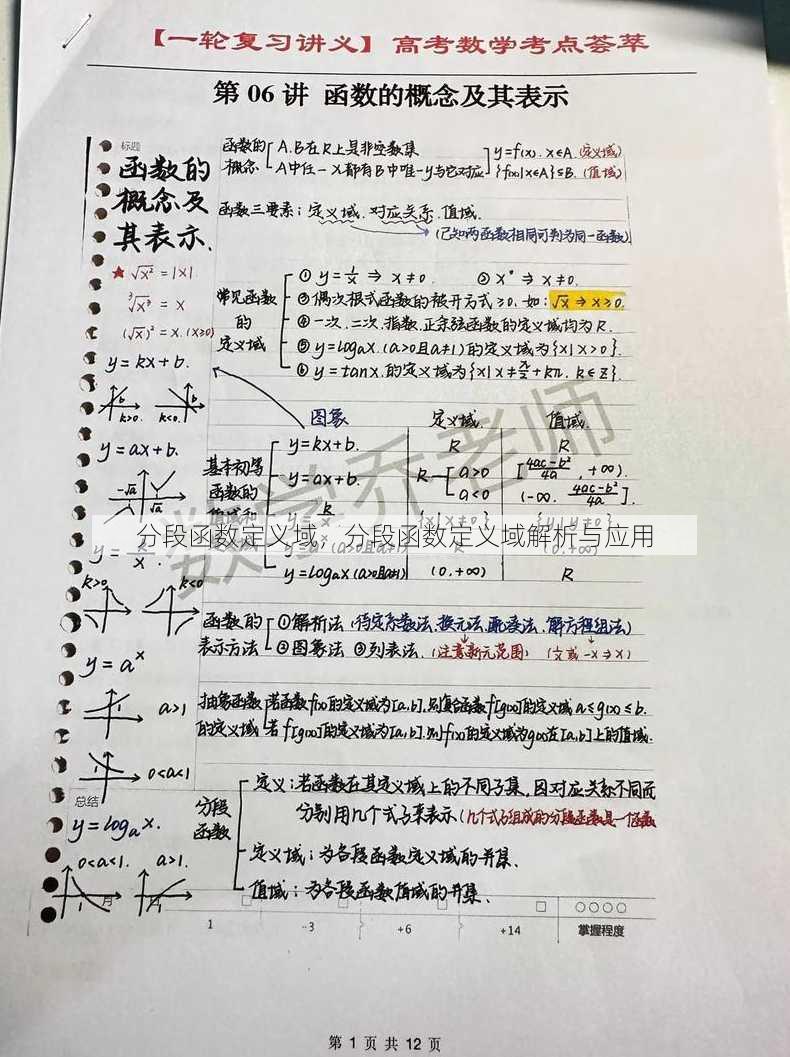 【一轮复习讲义】高考数学考点荟萃
第 06 讲 函数的概念及其表示
标题
函数的
概念及
其表示.
★ √x² = |x|
³√x³ = x
(√x)² = x. (x≥0)
y = kx + b.
b
b
k>0.
k<0.
y = ax + b.
-√a
√a
y = - x.
k>0
k<0
y = aˣ
1
a>1
1
0<a<1
总结
y = logₐx.
0<a<1.
a>1.
1
1
函数的概念
A.B在R上是非空数集
A中任一x都有B中唯一y与它对应
y=f(x). x∈A. (定义域)
{f(x)|x∈A}⊆B. (值域)
函数三要素: 定义域. 对应关系. 值域.
(已知两函数相同可判为同一函数)
常见函数的定义域
① y = 1/x ⇒ x≠0.
② x⁰ ⇒ x≠0.
③ 偶次根式函数的被开方式≥0. 如: √x ⇒ x≥0.
④ 一次. 二次. 指数. 正余弦函数的定义域均为R.
⑤ y = logₐx. (a>0且a≠1)的定义域为{x|x>0}.
⑥ y = tanx. 的定义域为{x|x≠π/2+kπ. k∈Z}.
图象 定义域. 值域.
基本初等
函数的
y = kx + b. R R
y = ax + b. R a>0 [4ac-b²/4a, +∞).
a<0 (-∞. 4ac-b²/4a].
{x|x≠0} {y|y≠0}
分段函数定义域，分段函数定义域解析与应用
y = logₐx (a>0且a≠1) (0.+∞) R
数学乔老师
函数的表示方法
① 解析法 (待定系数法. 换元法. 配凑法. 解方程组法)
② 图象法 ③ 列表法. (注意新元范围) (1/x或-x→x)
抽象函数的定义域
若函数f(x)的定义域为[a,b]. 则复合函数f[g(x)]的定义域a≤g(x)≤b.
若f[g(x)]的定义域为[a,b]. 则f(x)的定义域为g(x)在[a,b]上的值域.
分段函数
定义: 若函数在其定义域上的不同子集, 因对应关系不同而
分别用几个式子来表示. (几个式子组成的分段函数是一个函数
定义域: 为各段函数定义域的并集.
值域: 为各段函数值域的并集.
月 日
1 ·3 +6 +14 掌握程度
第 1 页 共 12 页